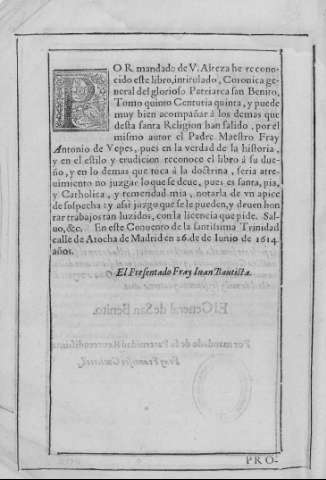 POR mandado de V. Alteza he recono-
cido este libro, intitulado, Coronica ge-
neral del glorioso Patriarca san Benito,
Tomo quinto Centuria quinta, y puede
muy bien acompañar à los demas que
desta santa Religion han salido, por el
mismo autor el Padre Maestro Fray
Antonio de Yepes, pues en la verdad de la historia,
y en el estilo y erudicion reconoce el libro à su due-
ño, y en lo demas que toca à la doctrina, seria atre-
uimiento no juzgar lo que se deue, pues es santa, pia,
y Catholica, y temeridad mia, notarla de vn apice
de sospecha: y assi juzgo que se le pueden, y deuen hon
rar trabajos tan luzidos, con la licencia que pide. Sal-
uo, &c. En este Conuento de la santissima Trinidad
calle de Atocha de Madrid en 26. de Iunio de 1614.
años.
El Presentado Fray Iuan Bautista.
El General de San Benito.
Por mandado de su Paternidad Reuerendissima
PRO-